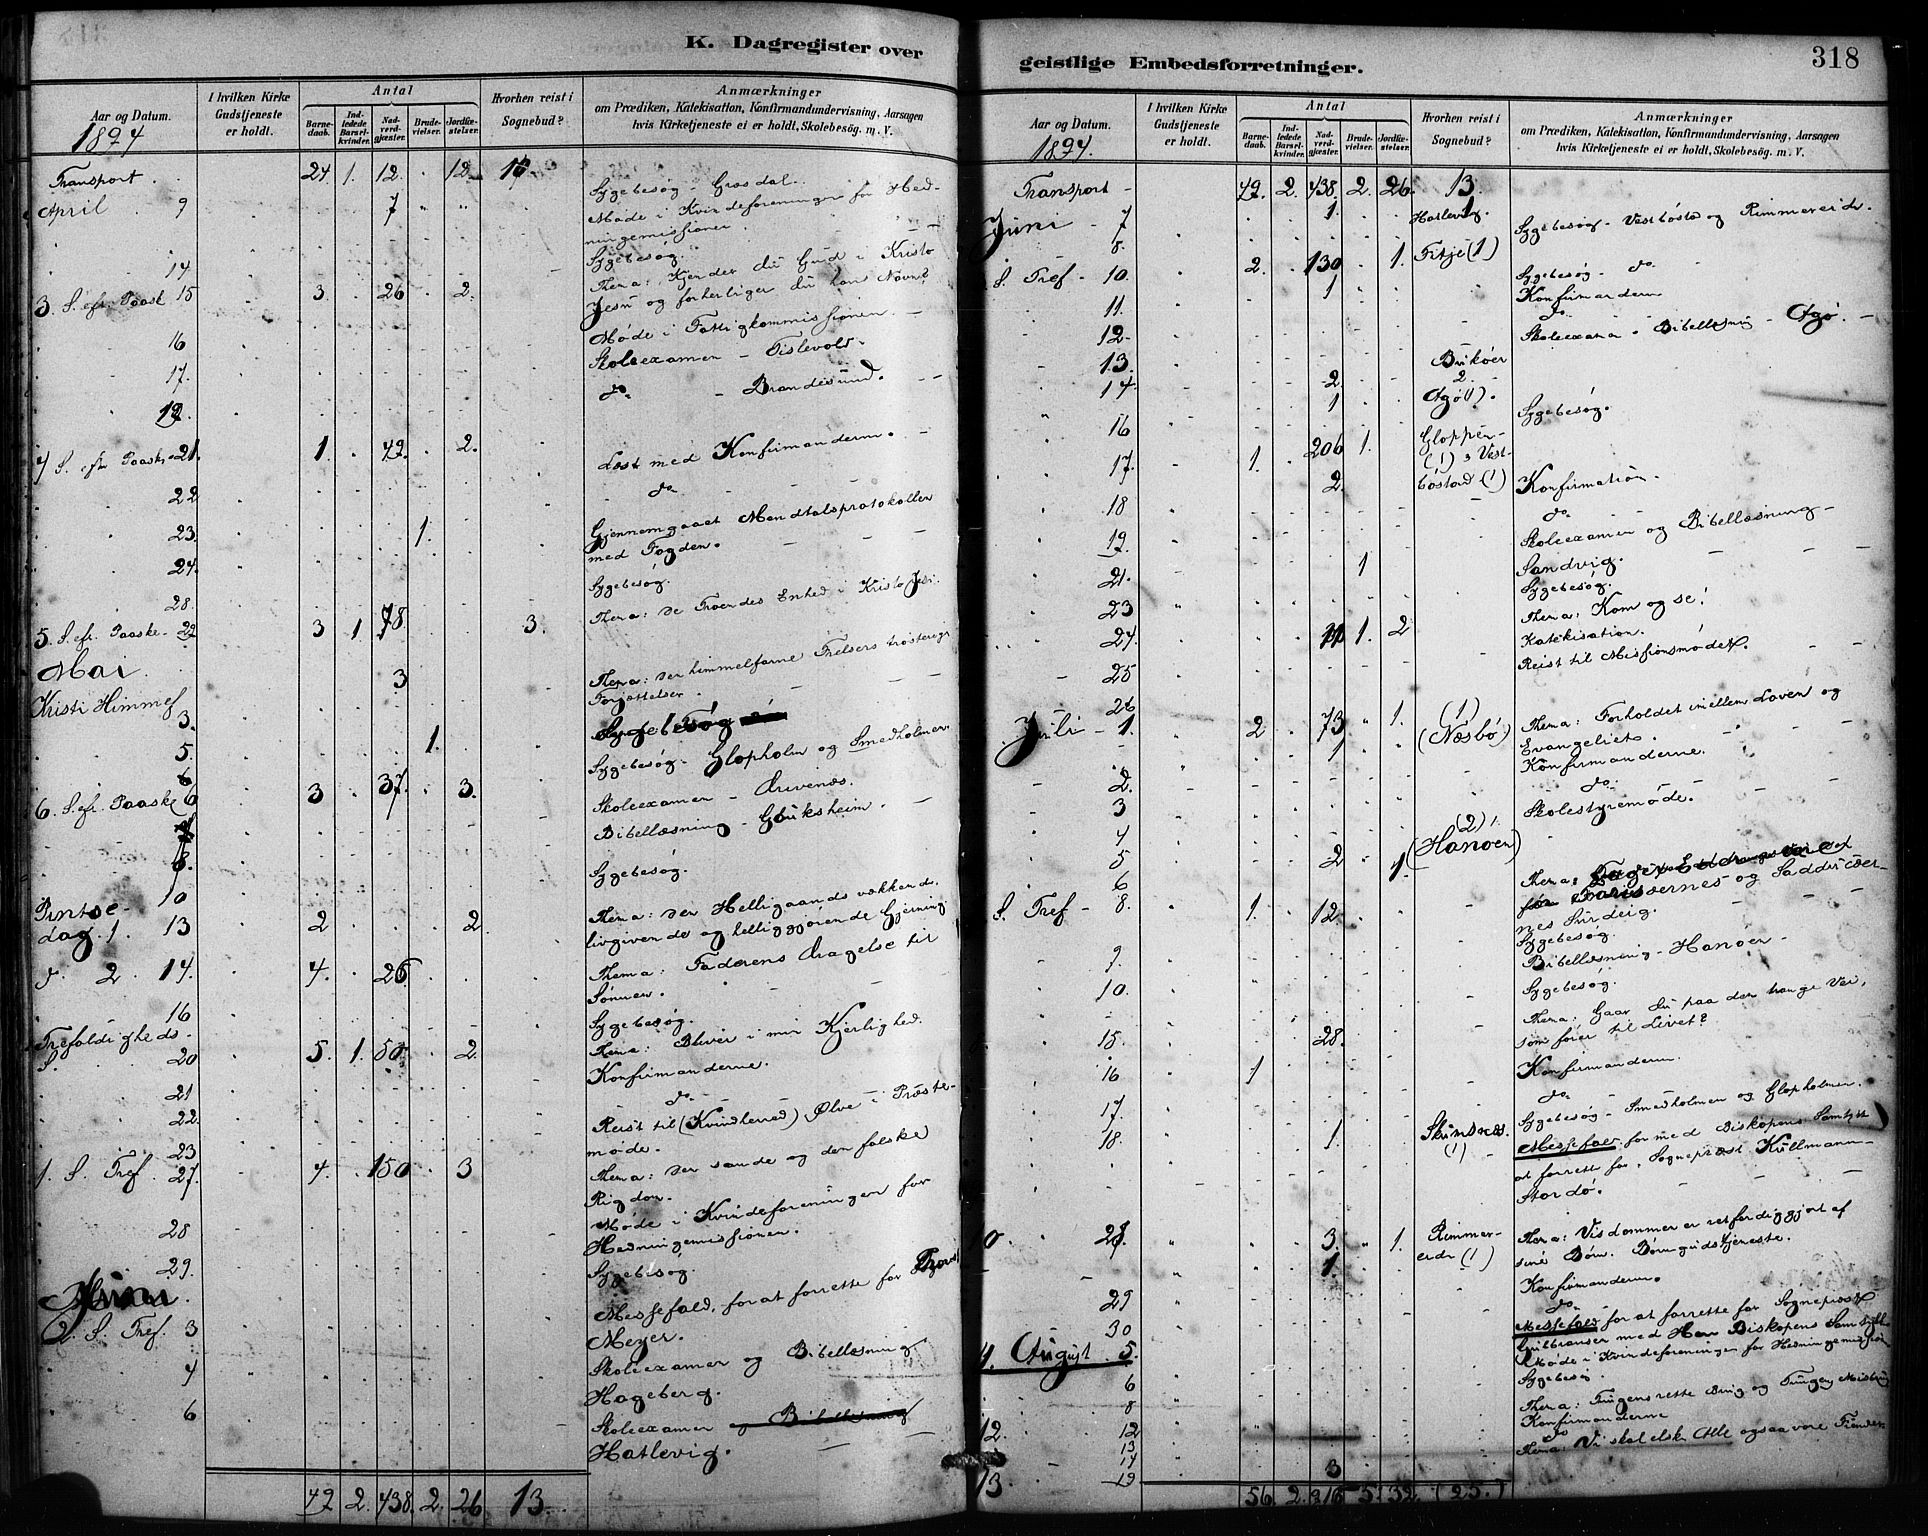 K. Dagregister over
Aar og Datum.
1894
I hvilken Kirke Gudstjeneste er holdt.
Antal
Barnedaab.
Indledede Barselkvinder.
Nadverdgjæster.
Brudevielser.
Jordfæstelser.
Hvorhen reist i Sognebud?
Anmærkninger
om Prædiken, Katekisation, Konfirmandundervisning, Aarsagen
hvis Kirketjeneste ei er holdt, Skolebesøg. m. V.
Transport 24 1. 12. 12. 10.
Sygebesøg - Grosdal.
April 9 7
Møde i Kvindeforeningen for Hed-
ningemissionen.
14 Sygebesøg.
3. S. efr. Paaske 15 3. 26 2.
Thema: Kjender du Gud i Kristo
Jesu og forherliger du hans Navn?
16 Møde i Fattigkommissionen
17. Skoleexamen - Tislevold.
do. - Brandesund.
4 S. efr. Paaske 21. 1. 42. 2.
Læst med Konfirmanderne.
22 do
23. 1.
Gjennemgaaet Mandtalsprotokollen
med Fogden.
24. Sygebesøg.
28.
5. S. efr. Paaske 29 3 1. 78. 3.
Thema: De Troendes Enhed i Kristo Jesu.
Mai.
Kristi Himmelf 3. 3
Thema: Den himmelfarne Frelsers trøsterige
Forjættelser.
5. 1.
Sygebesøg - Glopholm og Smedholmen
6. S. efr. Paaske 6 3 37. 3.
Skoleexamen - Drivenæs.
Bibellæsning - Gluksheim.
8. Sygebesøg.
10
Pintsedag. 1. 13 2 2.
Thema: Den Helligaands vækkende,
livgivende og helliggjørende Gjerning.
d. 2 14. 4. 26
Thema: Faderens Dragelse til
Sønnen.
16 Sygebesøg.
Trefoldigheds S. 20 5. 1. 50. 2.
Thema: Bliver i min Kjerlighed.
21 Konfirmanderne.
22 do
23 Reist til (Kvindherred) Ølve i Præste-
møde.
1. S. Tref. 27. 4. 150 3
Thema: Den sande og den falske
Rigdom.
28 Møde i Kvindeforeningen for
Hedningemissionen.
29. Sygebesøg.
Juni
2. S. Tref. 3
Messefald, for at forrette for
Meyer.
4 Skoleexamen og Bibellæsning
Hageberg.
6 Skoleexamen og Bibellæsning
Hatlevig.
47 2. 438. 2. 26 13.
geistlige Embedsforretninger.
318
Aar og Datum.
1894.
I hvilken Kirke Gudstjeneste er holdt.
Antal
Barnedaab.
Indledede Barselkvinder.
Nadverdgjæster.
Brudevielser.
Jordfæstelser.
Hvorhen reist i Sognebud?
Anmærkninger
om Prædiken, Katekisation, Konfirmandundervisning, Aarsagen
hvis Kirketjeneste ei er holdt, Skolebesøg. m. V.
Transport - 47. 2. 438. 2. 26. 13.
Juni - 7 1. Hatlevig. 1.
Sygebesøg - Vestbøsta og Rimmereide.
8
S. Tref - 10. 2. 130 1. Fitje (1)
Sygebesøg - do
11. 1 Konfirmanderne
12. do
13. Skoleexamen - Bibellæsning - Agø.
14. 2. 2.
16 1 Agø (1). Sygebesøg.
17. 1. 206 1.
18 2. Konfirmation.
do
19. Skoleexamen og Bibellæsning
21. 1 Sandvig.
23 Sygebesøg.
24. 1. 2 Thema: Kom og se!
Katekisation.
25 Reist til Missionsmødet.
26
Juli - 1. 2 73 1. (1) (Næsbø)
Thema: Forholdet imellem Loven og
Evangeliet.
2. Konfirmanderne.
3 do
4 Skolestyremøde.
5 2 1. (2) (Hanøen)
6
S. Tref - 8. 1. 12.
Thema: Farisæernes og Sadducæer-
nes Surdeig.
Sygebesøg.
9. Bibellæsning - Hanøen
10. Sygebesøg.
15. 28.
Thema: Gaar Du paa den trange Vei,
som fører til Livet?
16 1 Konfirmanderne.
17. do
18. 1 (1)
Sygebesøg - Smedholmen og Glopholmen.
Messefald for med Biskopens Samtykke
at forrette for Sogneprest Kullmann
Stordø.
10 28. 3. 1. Rimmereide (1)
1.
Thema: Visdommen er retfærdiggjort af
sine Børn. Børnegudstjeneste.
29 Konfirmanderne.
30 do
4. August. 5.
Messefald for at forrette for Sogneprest
Gulbransen med Herr Biskopens Samtykke
6 Møde i Kvindeforeningen for Hedningemission
8 Sygebesøg
12. 12
Thema: Tungens rette Brug og Tungens Misbrug
Konfirmanderne
13 do
14 3
13. 19
Thema: Vi skal elske Alle ogsaa vore Fiender
56. 2. 916 5. 32. (25.)